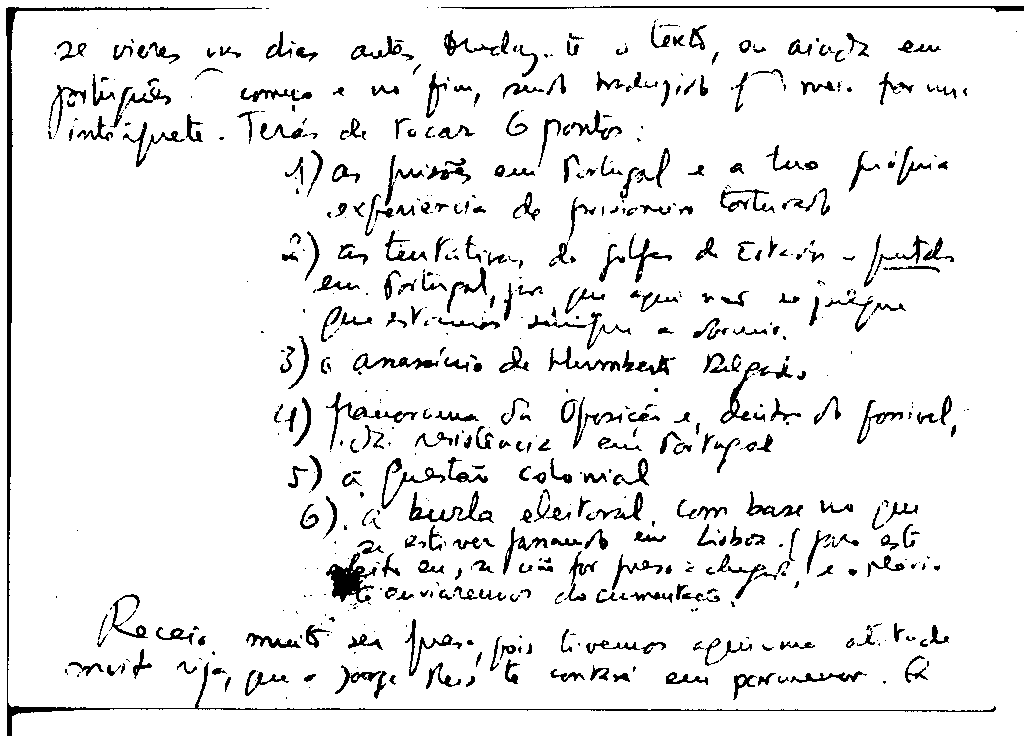 se vieres uns dias antes, traduz-te o texto, ou ainda em
português começo e no fim, sendo traduzido meio por um
intérprete. Terás de tocar 6 pontos:
1) as prisões em Portugal e a tua própria
experiência de prisioneiro torturado
2) as tentativas de golpes de Estado
em Portugal, para que aqui não se julgue
que estamos sempre a dormir.
3) o assassínio de Humberto Delgado
4) panorama da Oposição e, dentro do possível,
da resistência em Portugal
5) a questão colonial
6) a burla eleitoral, com base no que
se estiver passando em Lisboa. (para este
efeito eu, se não for preso à chegada, e o
te enviaremos documentação.
Receio muito ser preso, pois tivemos aqui uma atitude
muito rija, que o Jorge Reis te contará em pormenor. Q